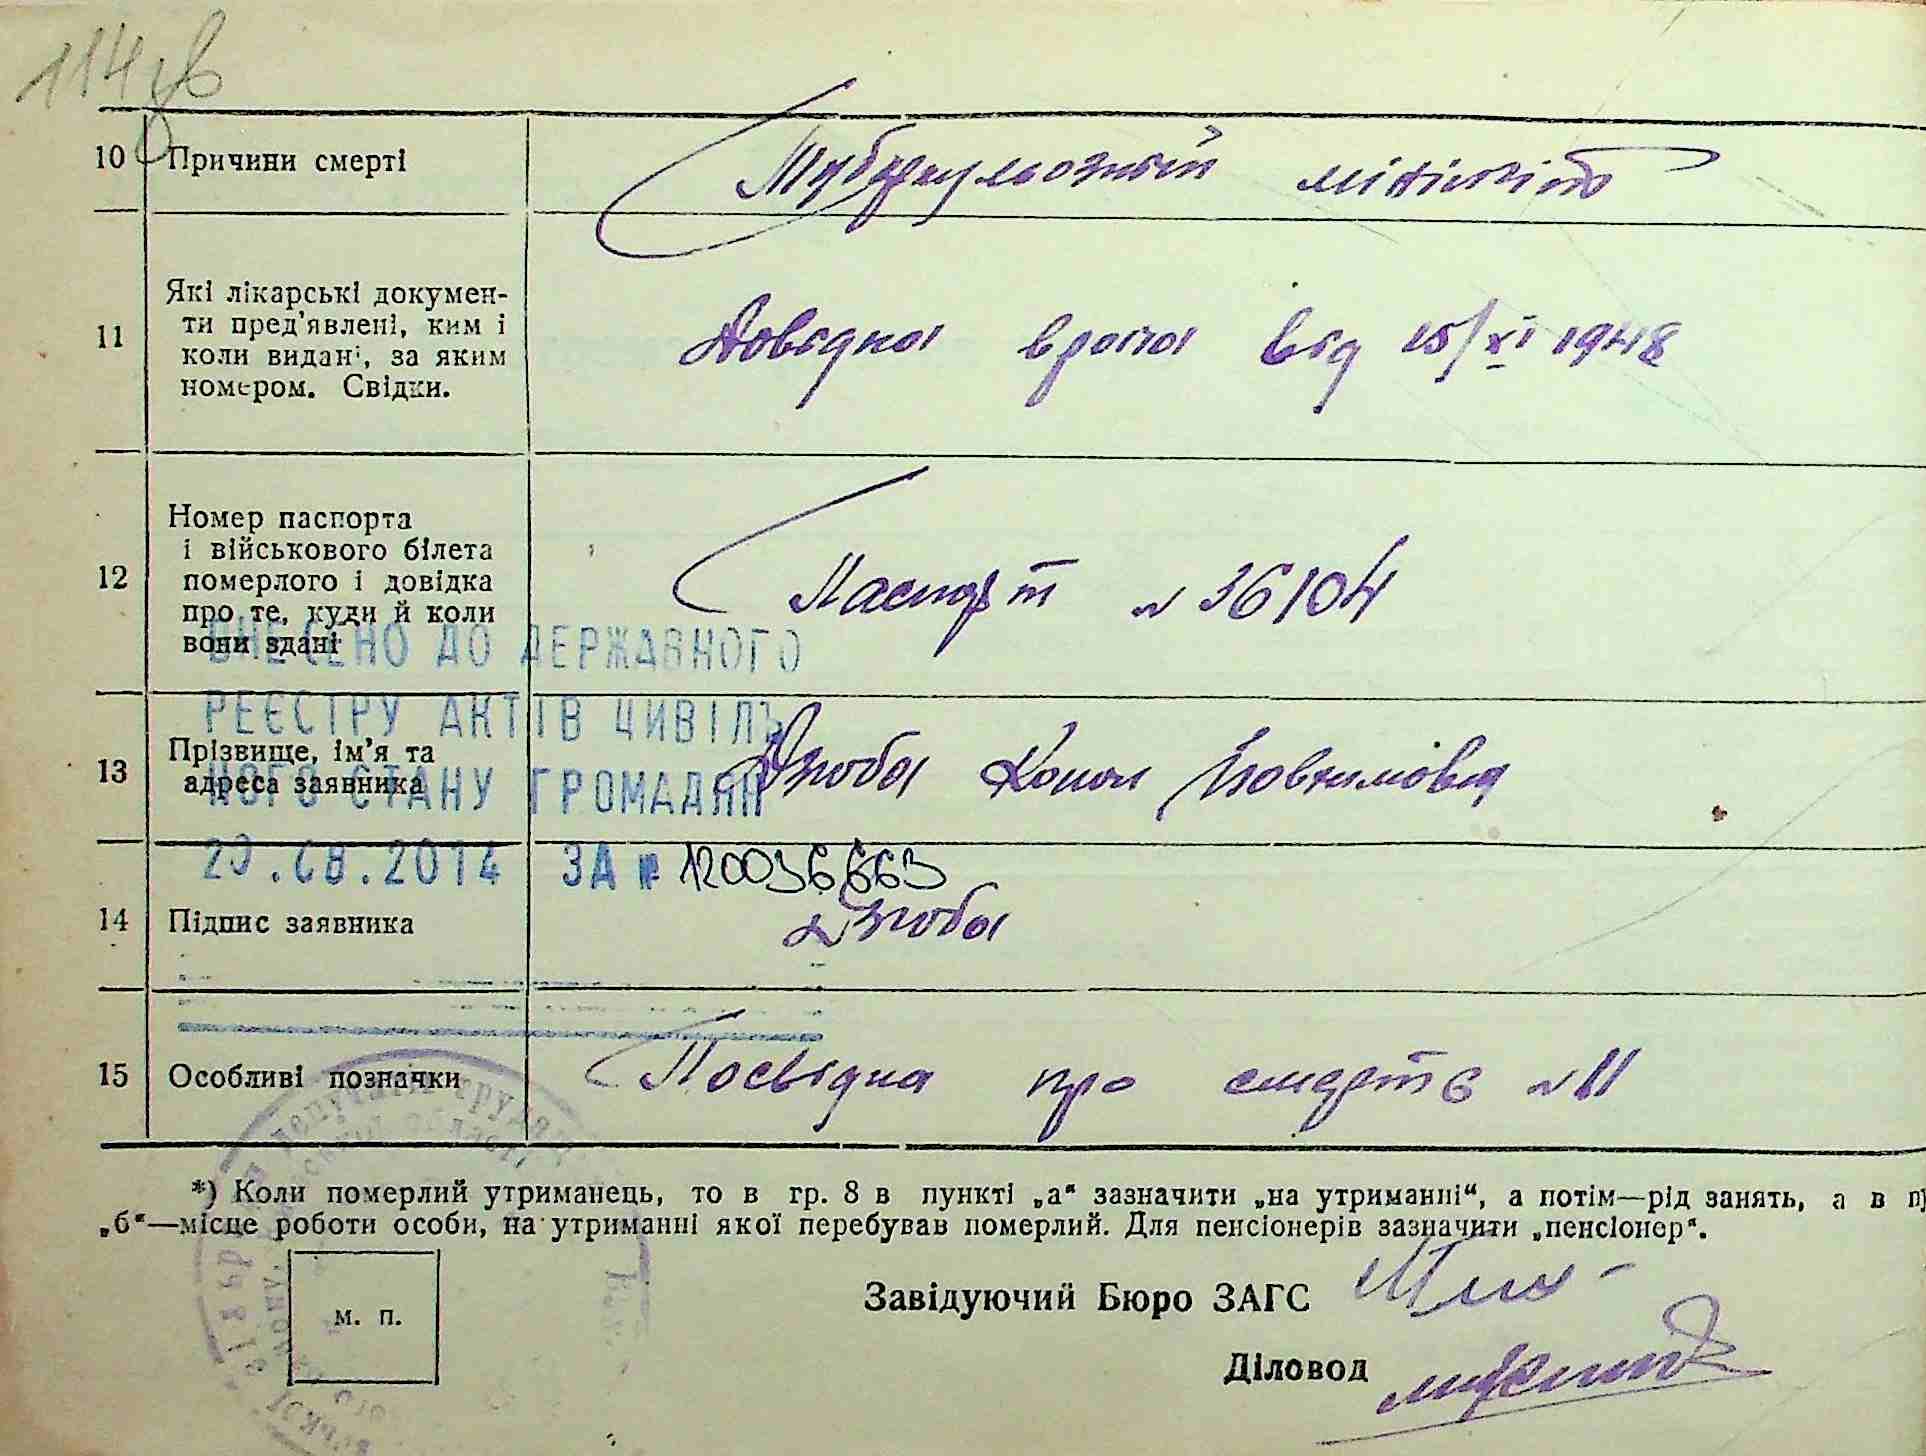 114 зв
10 Причини смерті Туберкульозний мінінгіт
11 Які лікарські докумен-
ти пред'явлені, ким і
коли видані, за яким
номером. Свідки.
Довідка врача від 15/XI 1948
12 Номер паспорта
і військового білета
померлого і довідка
про те, куди й коли
вони здані
Паспорт № 36104
ВНЕСЕНО ДО ДЕРЖАВНОГО
РЕЄСТРУ АКТІВ ЦИВІЛЬ
НОГО СТАНУ ГРОМАДЯН
13 Прізвище, ім'я та
адреса заявника
Дзюба Йовхимовна
20.08.2014 ЗА № 120036663
14 Підпис заявника Дзюба
15 Особливі позначки Посвідка про смерть № 11
*) Коли померлий утриманець, то в гр. 8 в пункті „а“ зазначити „на утриманні“, а потім—рід занять, а в
„б“—місце роботи особи, на утриманні якої перебував померлий. Для пенсіонерів зазначити „пенсіонер“.
м. п.
Завідуючий Бюро ЗАГС
Діловод